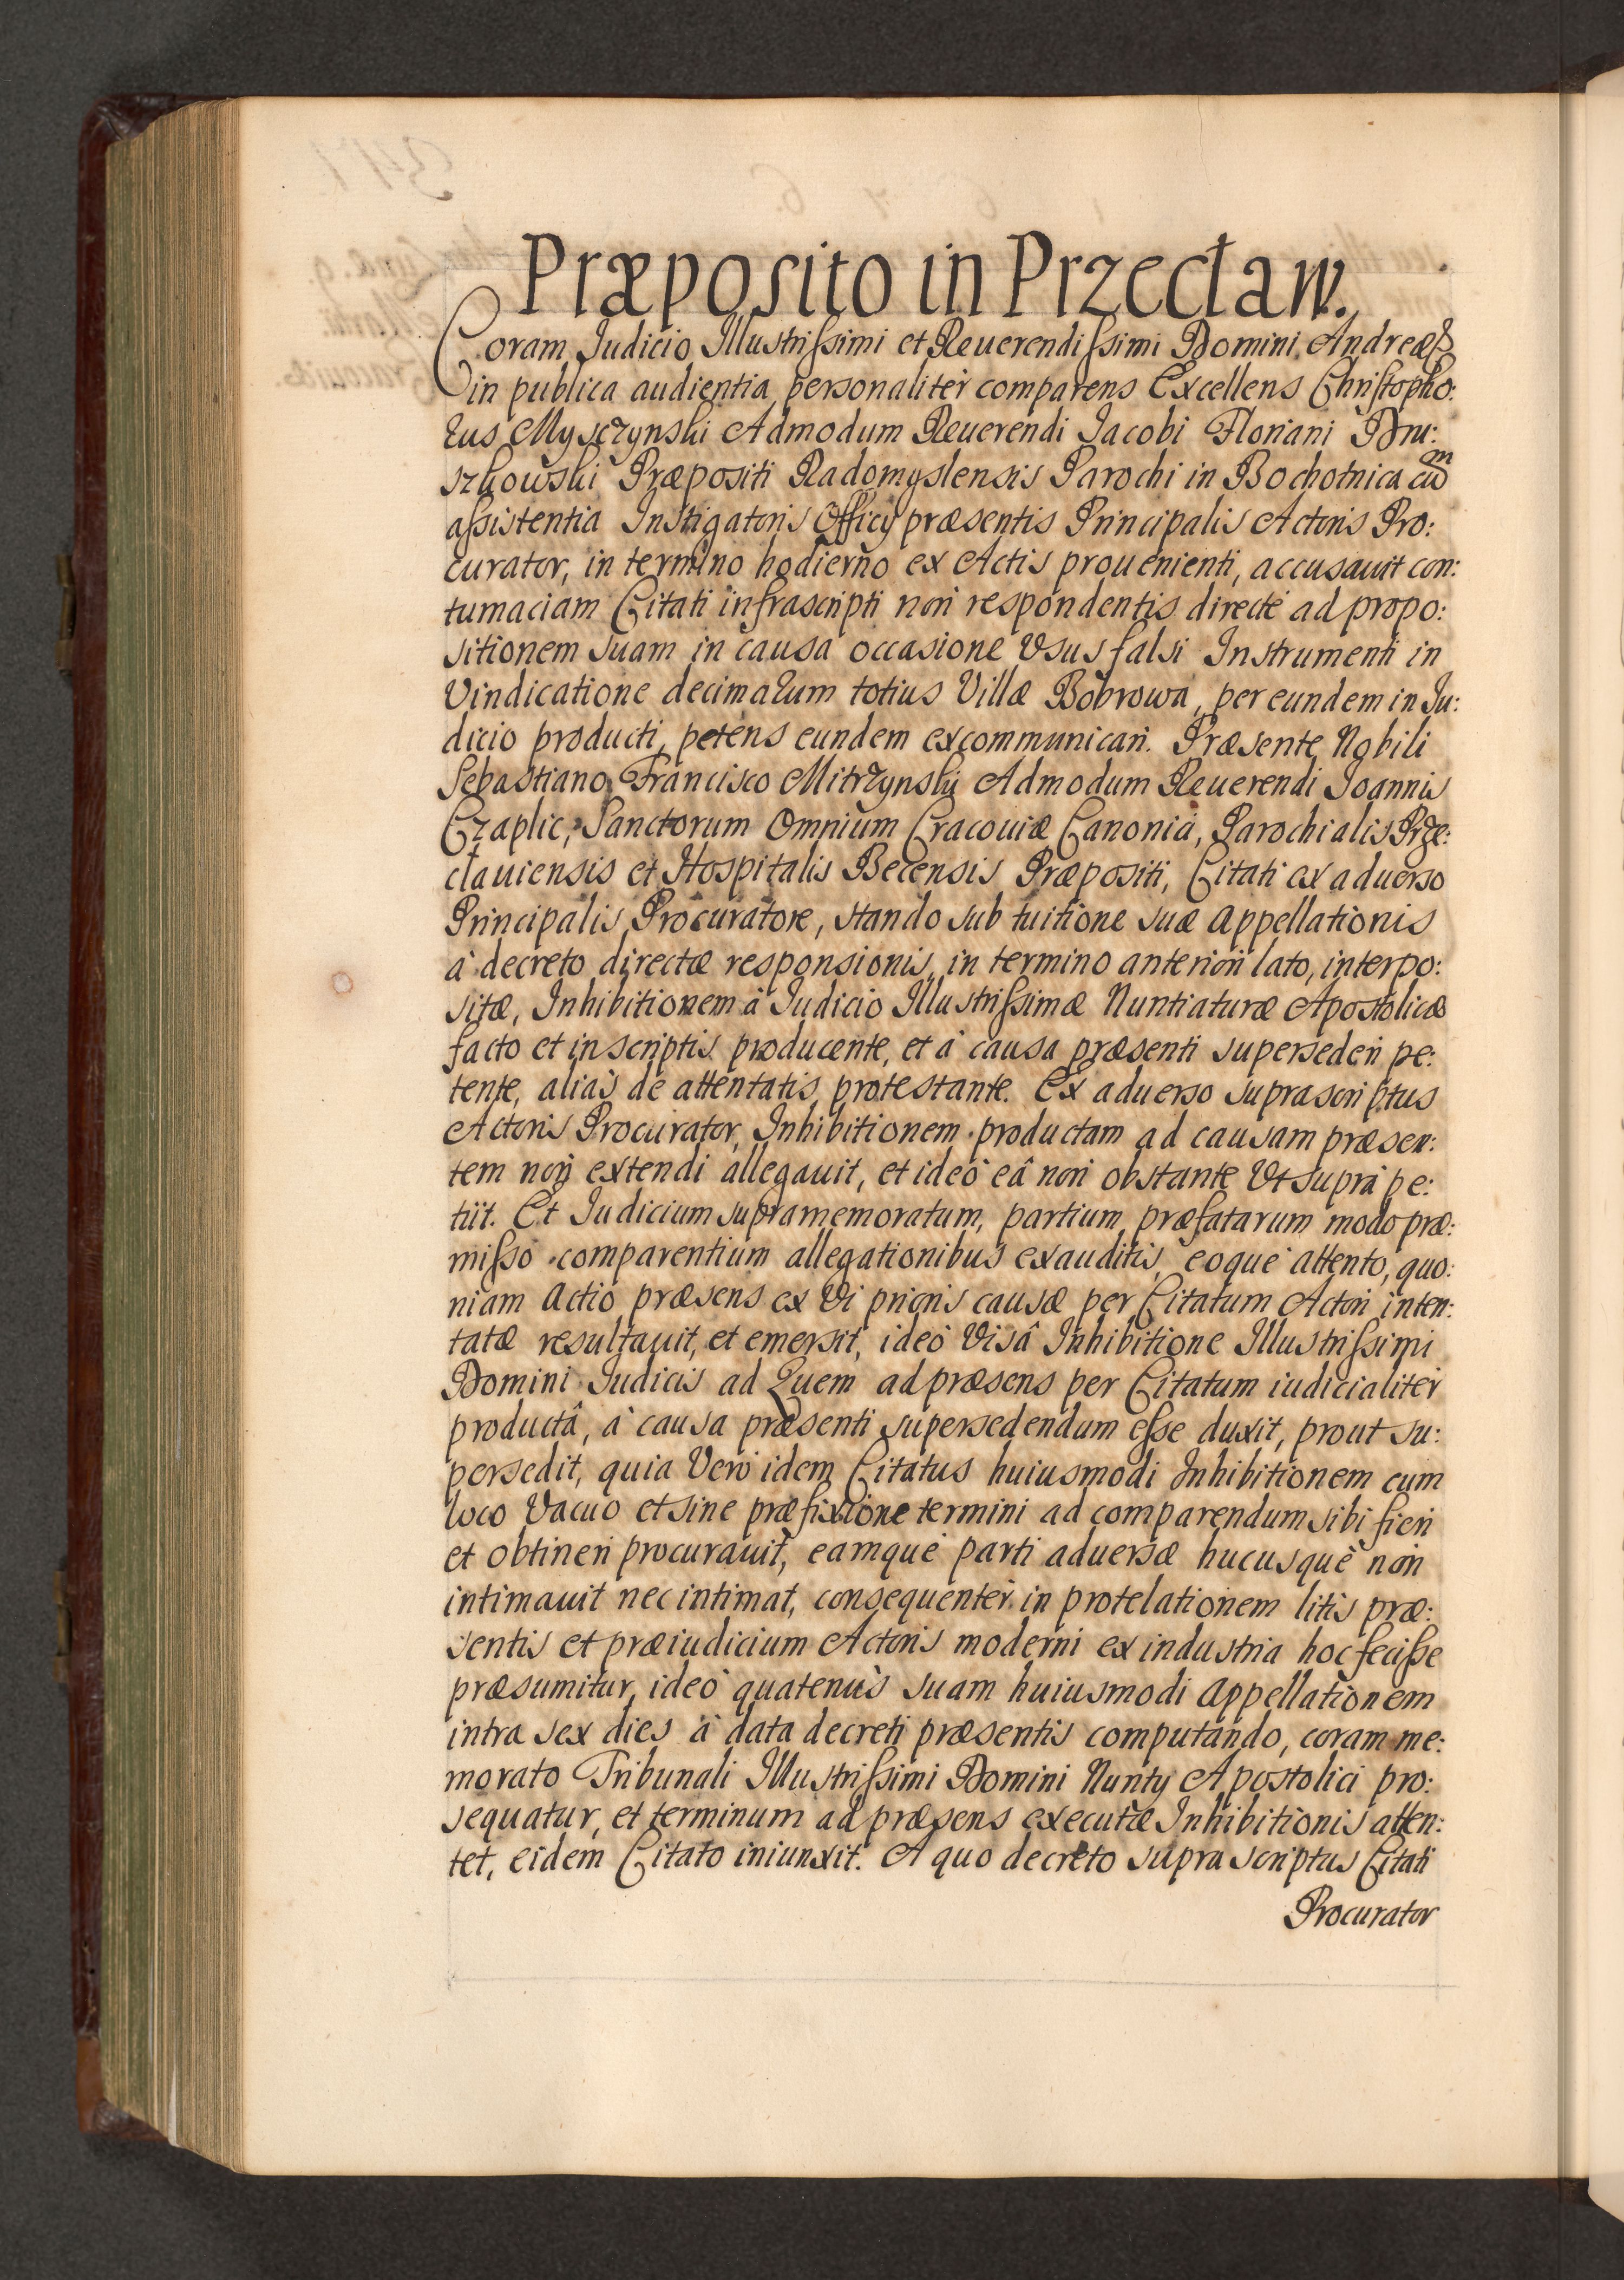 Præposito in Przecław.
Coram Judicio Illustrissimi et Reuerendissimi Domini Andreæ
in publica audientia personaliter comparens Excellens Christopho:
rus Mysczynski Admodum Reuerendi Jacobi Floriani Dru:
szkowski Præpositi Radomyslensis Parochi in Bochotnica cum
assistentia Instigatoris Officÿ præsentis Principalis Actoris Pro:
curator, in termino hodierno ex Actis prouenienti, accusauit con:
tumaciam Citati infrascripti non respondentis directè ad propo:
sitionem suam in causa occasione Vsus falsi Instrumenti in
Vindicatione decimarum totius Villæ Bobrowa, per eundem in Ju:
dicio producti, petens eundem excommunicari. Præsente Nobili
Sebastiano Francisco Mitrzynsky Admodum Reuerendi Joannis
Czaplic, Sanctorum Omnium Cracouiæ Canonia, Parochialis Prze:
clauiensis et Hospitalis Becensis Præpositi, Citati ex aduerso
Principalis Procuratore, stando sub tuitione suæ Appellationis
à decreto directæ responsionis in termino anteriori lato, interpo:
sitæ, Inhibitionem à Judicio Illustrissimæ Nuntiaturæ Apostolicæ
facto et in scriptis producente, et à causa præsenti supersederi pe:
tente, aliàs de attentatis protestante. Ex aduerso suprascriptus
Actoris Procurator, Inhibitionem productam ad causam præsen:
tem non extendi allegauit, et ideò eâ non obstante Vt suprà pe:
tiit. Et Judicium supramemoratum, partium præfatarum modo præ:
misso comparentium allegationibus exauditis, eoque attento, quo:
niam Actio præsens ex Vi prioris causæ per Citatum Actori inten:
tatæ resultauit, et emersit, ideò Visâ Inhibitione Illustrissimi
Domini Judicis ad Quem ad præsens per Citatum iudicialiter
productâ, à causa præsenti supersedendum esse duxit, prout su:
persedit, quia Verò idem Citatus huiusmodi Inhibitionem cum
loco Vacuo et sine præfixione termini ad comparendum sibi fieri
et obtineri procurauit, eamque parti aduersæ hucusque non
intimauit nec intimat, consequenter in protelationem litis præ:
sentis et præiudicium Actoris moderni ex industria hoc fecisse
præsumitur, ideò quatenus suam huiusmodi Appellationem
intra sex dies à data decreti præsentis computando, coram me:
morato Tribunali Illustrissimi Domini Nuntÿ Apostolici pro:
sequatur, et terminum ad præsens executæ Inhibitionis atten:
tet, eidem Citato iniunxit. A quo decreto supra scriptus Citati
Procurator